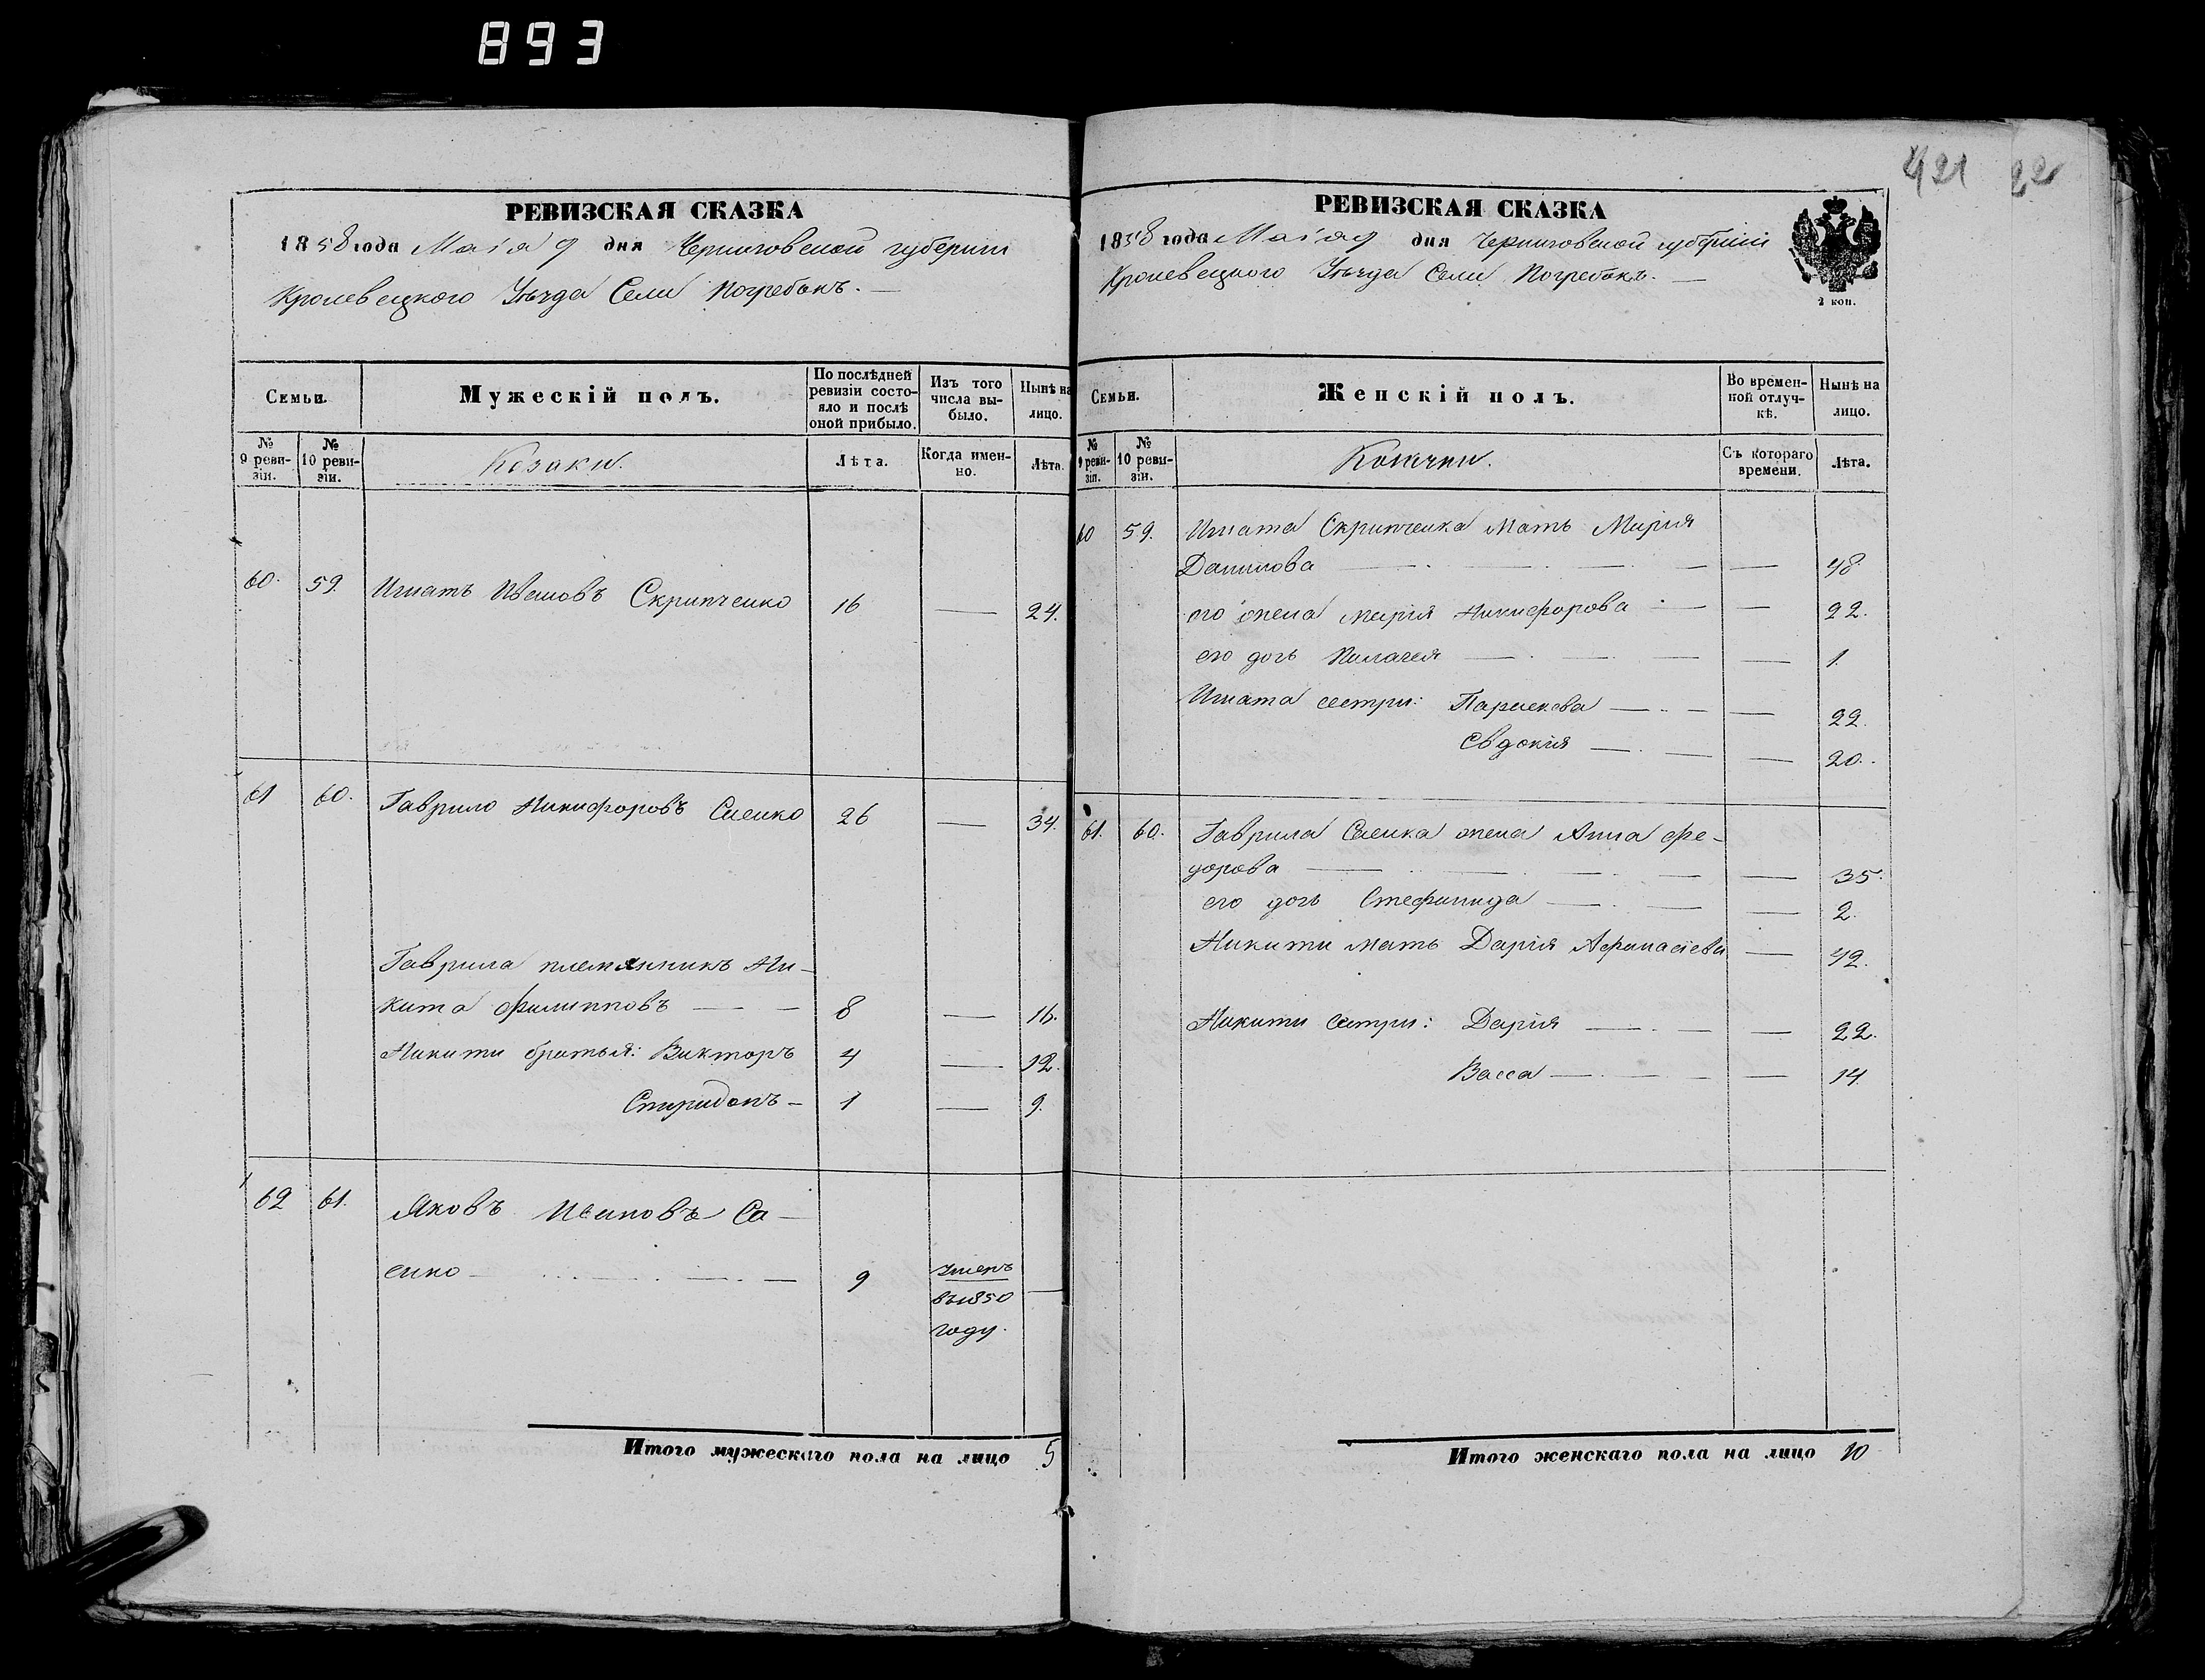 893
421 22
РЕВИЗСКАЯ СКАЗКА
1858 года Маія 9 дня Черниговской губерніи
Кролевецкого Уѣзда Села Погребокъ. —
Семьи.
Мужескій полъ.
По послѣдней ревизіи состояло и послѣ оной прибыло.
Изъ того числа выбыло.
Нынѣ на лицо.
№ 9 ревизіи.
№ 10 ревизіи.
Козаки.
Лѣта.
Когда именно.
Лѣта.
60. 59. Игнатъ Ивановъ Скрипченко 16 — 24.
61 60. Гаврило Никифоровъ Саенко 26 — 34.
Гаврила племянникъ Ни-
кита Филипповъ — — 8 — 16.
Никити братья: Викторъ 4 — 12.
Спиридонъ — 1 — 9.
62 61. Яковъ Ивановъ Са-
енко — 9 умеръ —
въ 1850
году.
Итого мужескаго пола на лицо 5
РЕВИЗСКАЯ СКАЗКА
1858 года Маія 9 дня Черниговской губерніи
Кролевецкого Уѣзда Села Погребокъ. —
2 коп.
Семьи.
Женскій полъ.
Во временной отлучкѣ.
Нынѣ на лицо.
№ 9 ревизіи.
№ 10 ревизіи.
Козачки.
Съ котораго времени.
Лѣта.
60 59. Игната Скрипченка Мать Марія
Данилова — — 48
его жена Марія Никифорова — — 22.
его дочь Пелагея — — 1.
Игната сестри: Парасковa — — 22.
Евдокія — — 20.
61. 60. Гаврила Саенка жена Анна Фе-
дорова — — 35.
его дочь Стефанида — — 2.
Никити мать Дарія Афанасіева — 42.
Никити сестри: Дарія — — 22.
Васса — — 14.
Итого женскаго пола на лицо 10